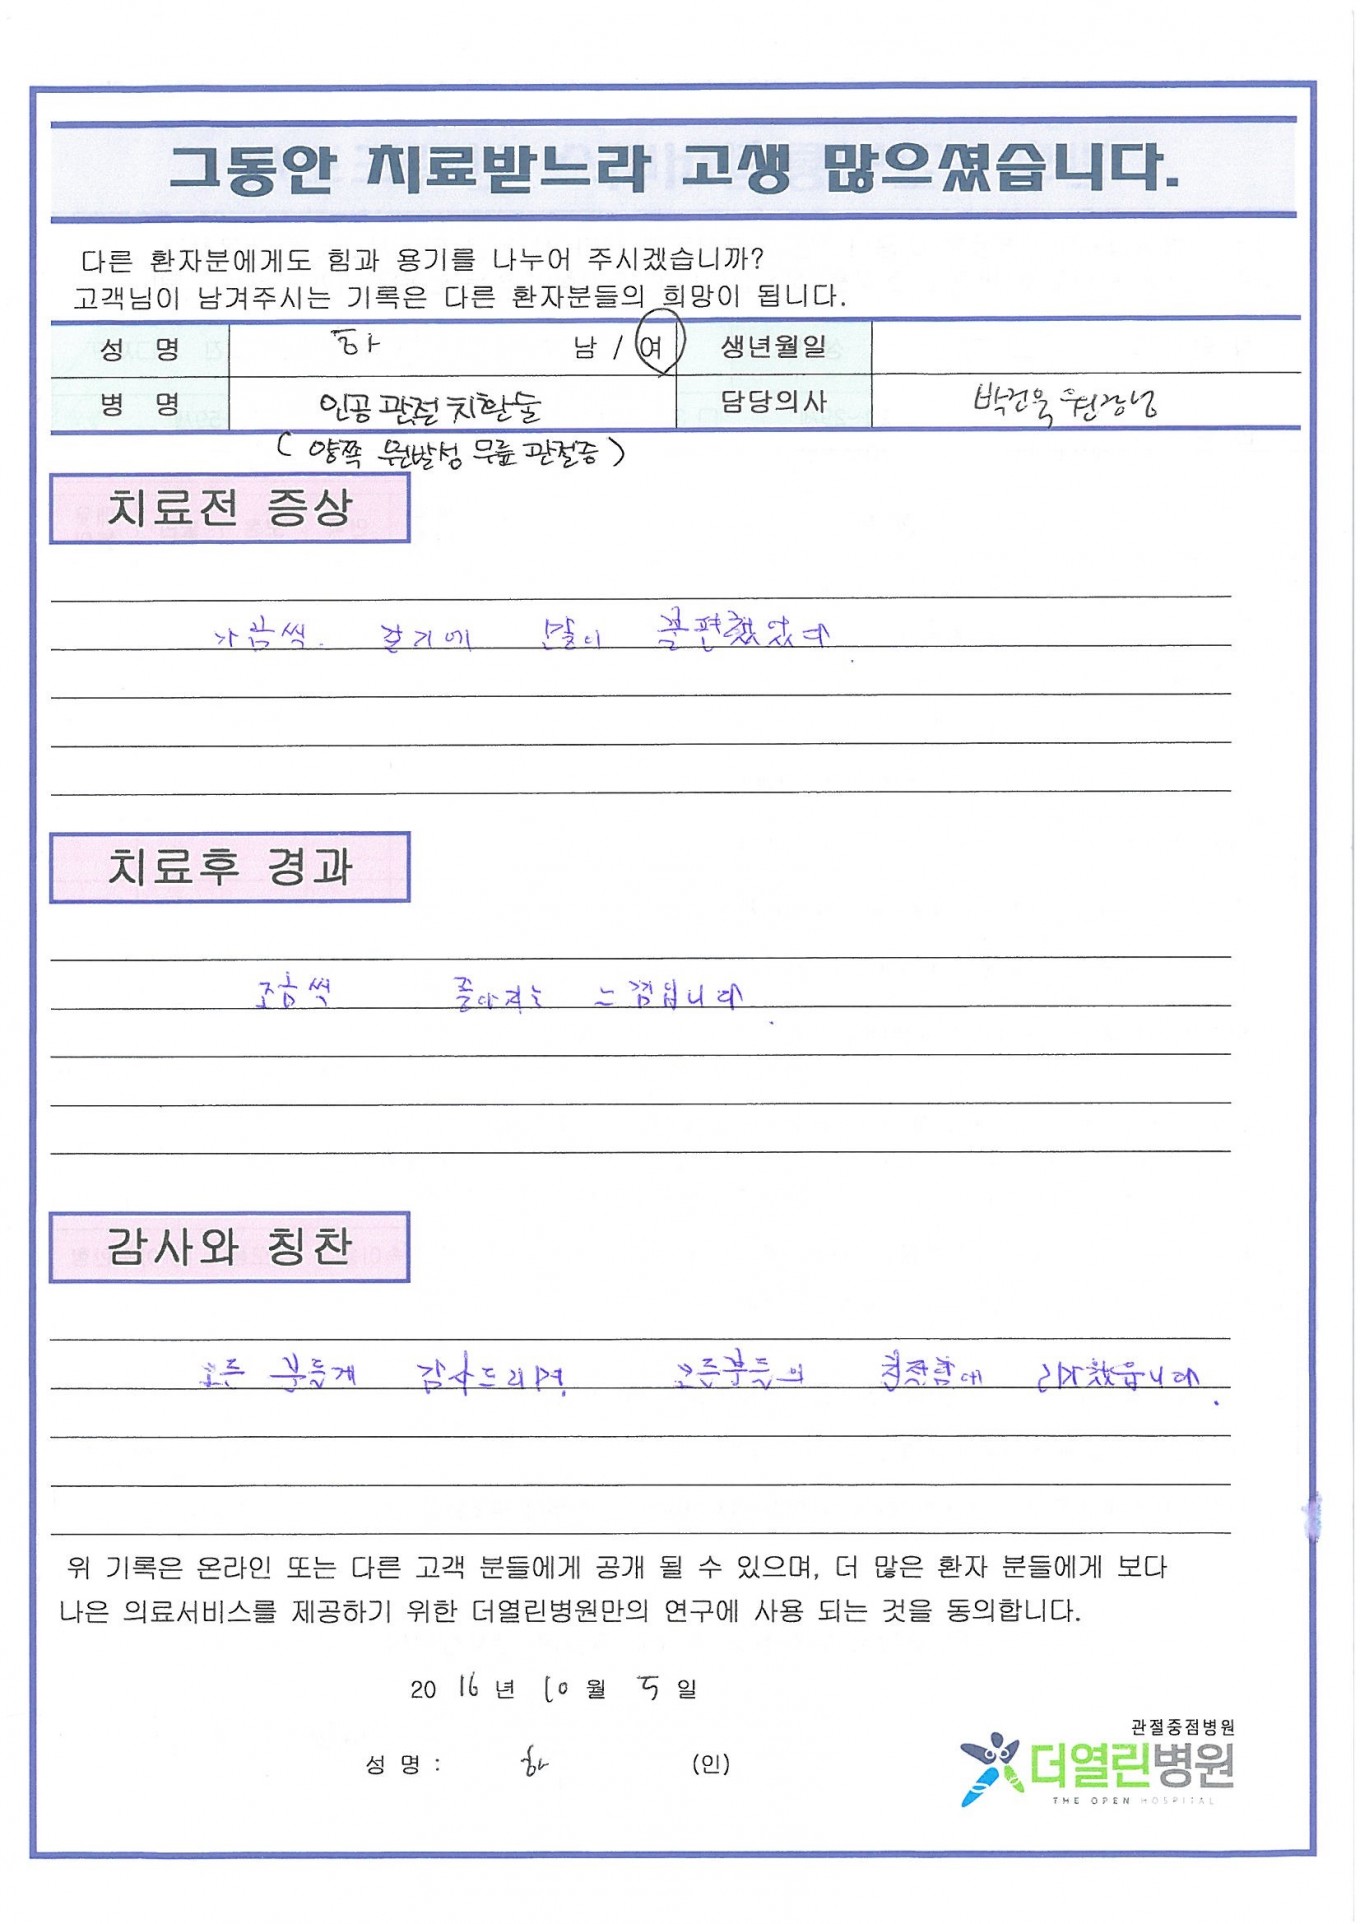 그동안 치료받느라 고생 많으셨습니다.
다른 환자분에게도 힘과 용기를 나누어 주시겠습니까?
고객님이 남겨주시는 기록은 다른 환자분들의 희망이 됩니다.
성 명 하 남 / 여 생년월일
병 명 인공 관절 치환술 담당의사 박건욱 원장님
( 양쪽 원발성 무릎 관절증 )
치료전 증상
가끔씩. 걷기에 많이 불편했었다.
치료후 경과
조금씩 좋아지는 느낌입니다.
감사와 칭찬
모든 분들게 감사드리며, 모든분들의 친절함에
위 기록은 온라인 또는 다른 고객 분들에게 공개 될 수 있으며, 더 많은 환자 분들에게 보다
나은 의료서비스를 제공하기 위한 더열린병원만의 연구에 사용 되는 것을 동의합니다.
2016년 10월 5일
성 명 : 하 (인)
관절중점병원
더열린병원
THE OPEN HOSPITAL